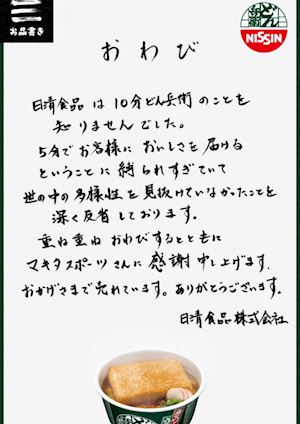 お品書き
どん兵衛
NISSIN
おわび
日清食品は10分どん兵衛のことを
知りませんでした。
5分でお客様においしさを届ける
ということに縛られすぎていて
世の中の多様性を見抜けていなかったことを
深く反省しております。
重ね重ねおわびするとともに
マキタスポーツさんに感謝申し上げます。
おかげさまで売れています。ありがとうございます。
日清食品株式会社